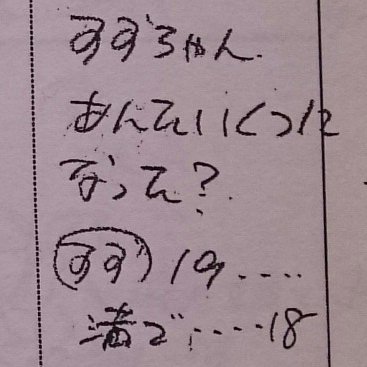 すずちゃん.
あんたいくつに
なった?
すず 19....
満で....18